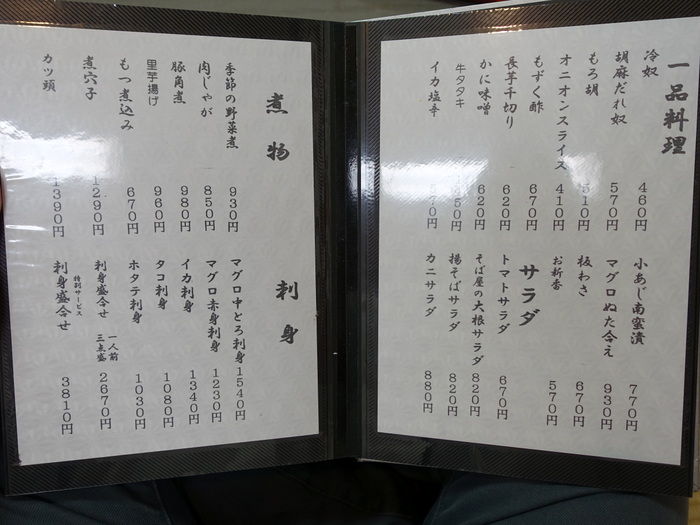 一品料理
冷奴 460円
胡麻だれ奴 570円
もろ胡 510円
オニオンスライス 410円
もずく酢 670円
長芋千切り 620円
かに味噌 620円
牛タタキ 50円
イカ塩辛 570円
小あじ南蛮漬 770円
マグロぬた合え 930円
板わさ 670円
お新香 570円
サラダ
トマトサラダ 670円
そば屋の大根サラダ 820円
揚そばサラダ 820円
カニサラダ 880円
煮物
季節の野菜煮 930円
肉じゃが 850円
豚角煮 980円
里芋揚げ 960円
もつ煮込み 670円
煮穴子 1290円
カツ頭 1390円
刺身
マグロ中とろ刺身 1540円
マグロ赤身刺身 1230円
イカ刺身 1340円
タコ刺身 1080円
ホタテ刺身 1030円
刺身盛合せ 一人前 三点盛 2670円
特別サービス
刺身盛合せ 3810円